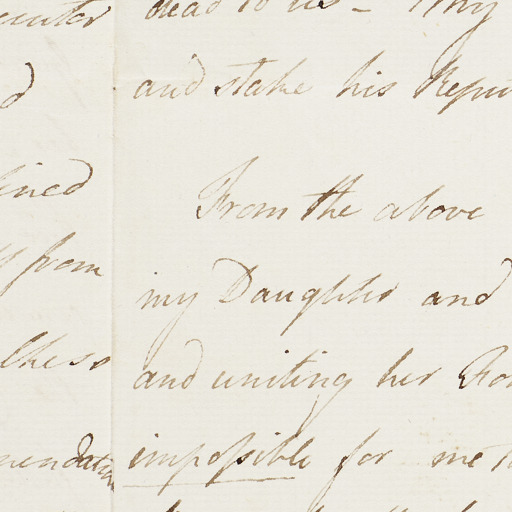 d
ined
from
these
mendation
dead to us - My
and stake his Repu
From the above
my Daughter and
and uniting her For
impossible for me t